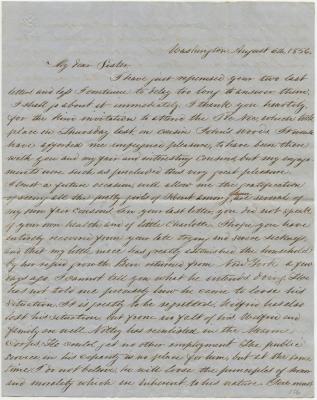 Washington August 6th, 1856.
My dear Sister
I have just reperused your two last
letters and lest I continue to delay too long to answer them,
I shall go about it immediately. I thank you heartily
for the kind invitation to attend the Pic Nic which took
place on Thursday last, in cousin John's woods. It would
have afforded me unfeigned pleasure, to have been there
with you and my fair and interesting Cousins, but my engage-
ments were such as precluded that very great pleasure.
I trust a future occasion, will allow me the gratification
of seeing all the pretty girls of Mount and several of
my own fair Cousins. In your last letter, you did not speak
of your own health, and of little Charlotte. I hope you have
entirely recovered from your late and severe sickness,
and that my little niece has greatly the household
by her Ben returned from New York a few
days ago. I cannot tell you what he intends doing. He
has not told me precisely how he came to loose his
situation. It is greatly to be regretted. Wilfrin has also
lost his situation but from no fault of his. Wilfrin and
family are well. Notley has reenlisted in the Marine
Corps. He could get no other employment. The public
service in his capacity is no place for him, but at the same
time I do not believe he will loose the principles of honor
and morality which are inherent to his nature. Give much